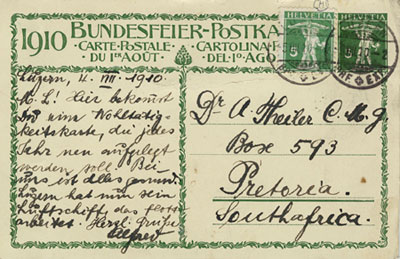 1910 BUNDESFEIER-POSTKA
CARTE POSTALE CARTOLINA
DU 1ER AOÛT DEL 1O AGO
HELVETIA HELVETIA
5 5
Luzern, 11. VIII. 1910.
M. L! Hier bekommst
Du eine Wohltätig-
keitskarte, die jedes
Jahr neu aufgelegt
werden soll. Bei
uns ist alles gesund.
Luzern hat nun sein
Luftschiff, das flott
arbeitet. Herzl. Grüße
Alfred
Dr A Theiler C.M.G
Box 593
Pretoria.
Southafrica.